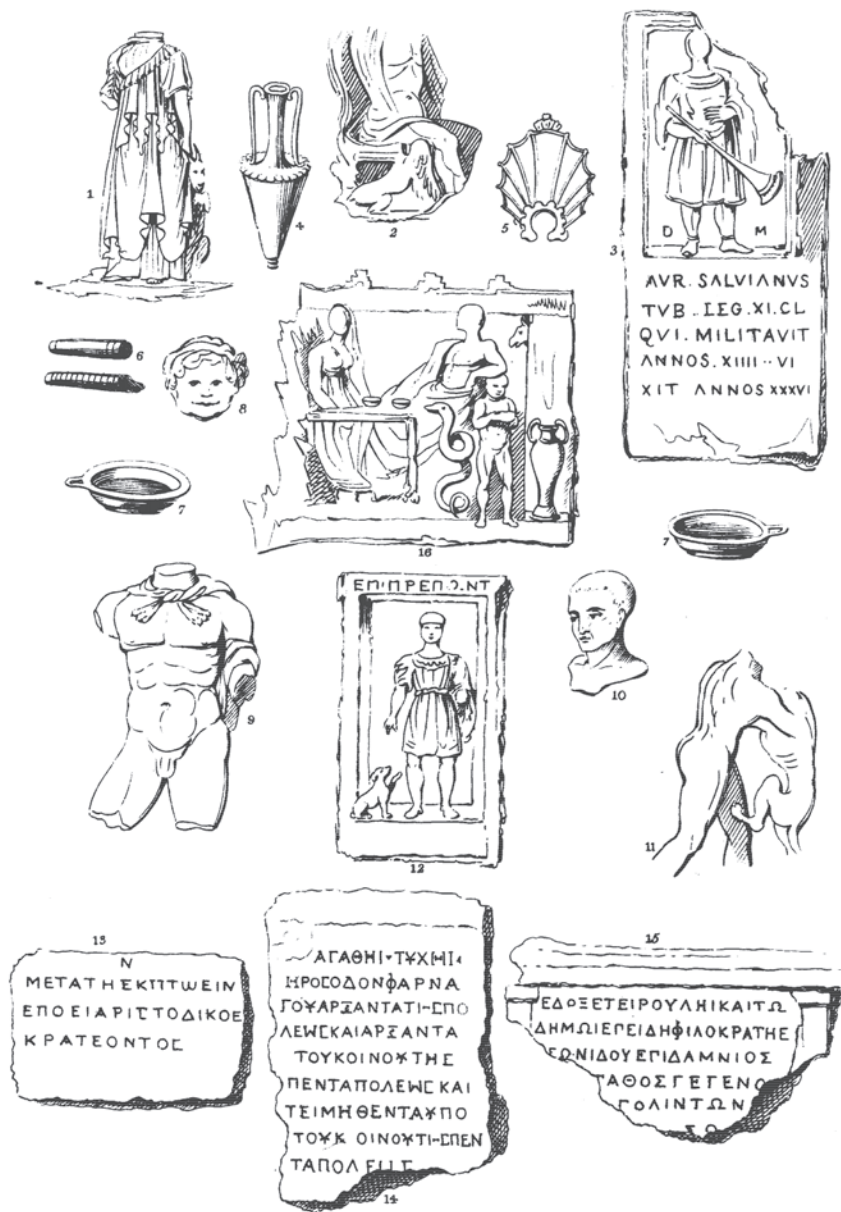 1
4
2
5
3
D M
AVR. SALVIANVS
TVB.. LEG. XI. CL
QVI. MILITAVIT
ANNOS. XIIII·· VI
XIT ANNOS XXXVI
6
8
7
16
7
ΕΠΙΠΡΕΠΩΝΤ
9
10
11
12
13
Ν
ΜΕΤΑΤΗΣΚΠΤΩΕΙΝ
ΕΠΟΕΙΑΡΙΣΤΟΔΙΚΟΕ
ΚΡΑΤΕΟΝΤΟΣ
ΑΓΑΘΗΙ·ΤΥΧΗΙ·
ΗΡΟΣΟΔΟΝΦΑΡΝΑ
ΓΟΥΑΡΞΑΝΤΑΤΗΣΠΟ
ΛΕΩΣΚΑΙΑΡΞΑΝΤΑ
ΤΟΥΚΟΙΝΟΥΤΗΣ
ΠΕΝΤΑΠΟΛΕΩΣΚΑΙ
ΤΕΙΜΗΘΕΝΤΑΥΠΟ
ΤΟΥΚ ΟΙΝΟΥΤΗΣΠΕΝ
ΤΑΠΟΛΕ
14
15
ΕΔΟΞΕΤΕΙΡΟΥΛΗΙΚΑΙΤΩ
ΔΗΜΩΙΕΓΕΙΔΗΦΙΛΟΚΡΑΤΗΕ
ΕΩΝΙΔΟΥΕΓΙΔΑΜΝΙΟΣ
ΓΑΘΟΣΓΕΓΕΝΟ
ΓΟΛΙΝΤΩΝ
ΣΩ